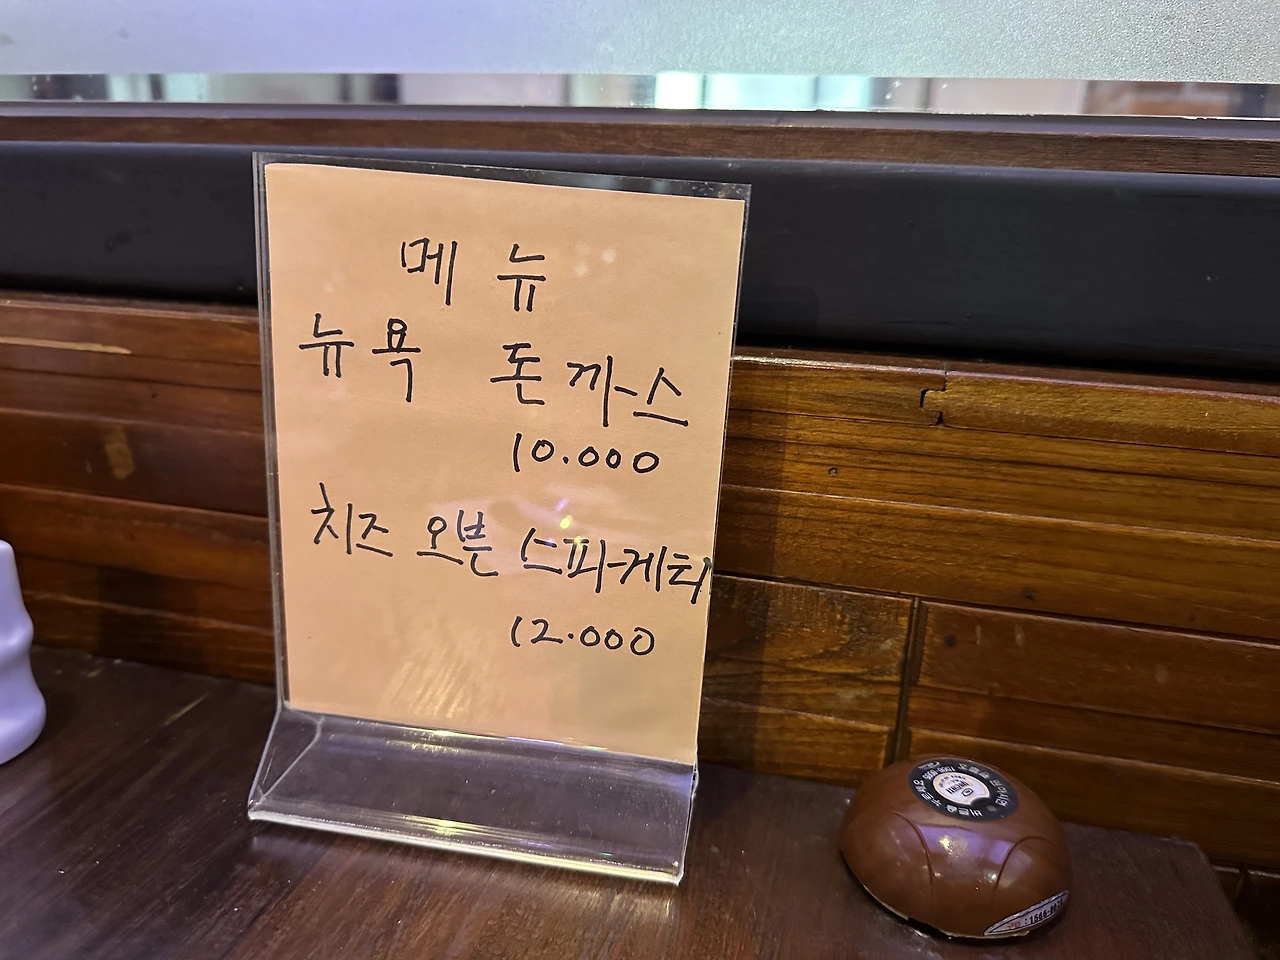 메뉴
뉴욕 돈까스
10.000
치즈 오븐 스파게티
12.000